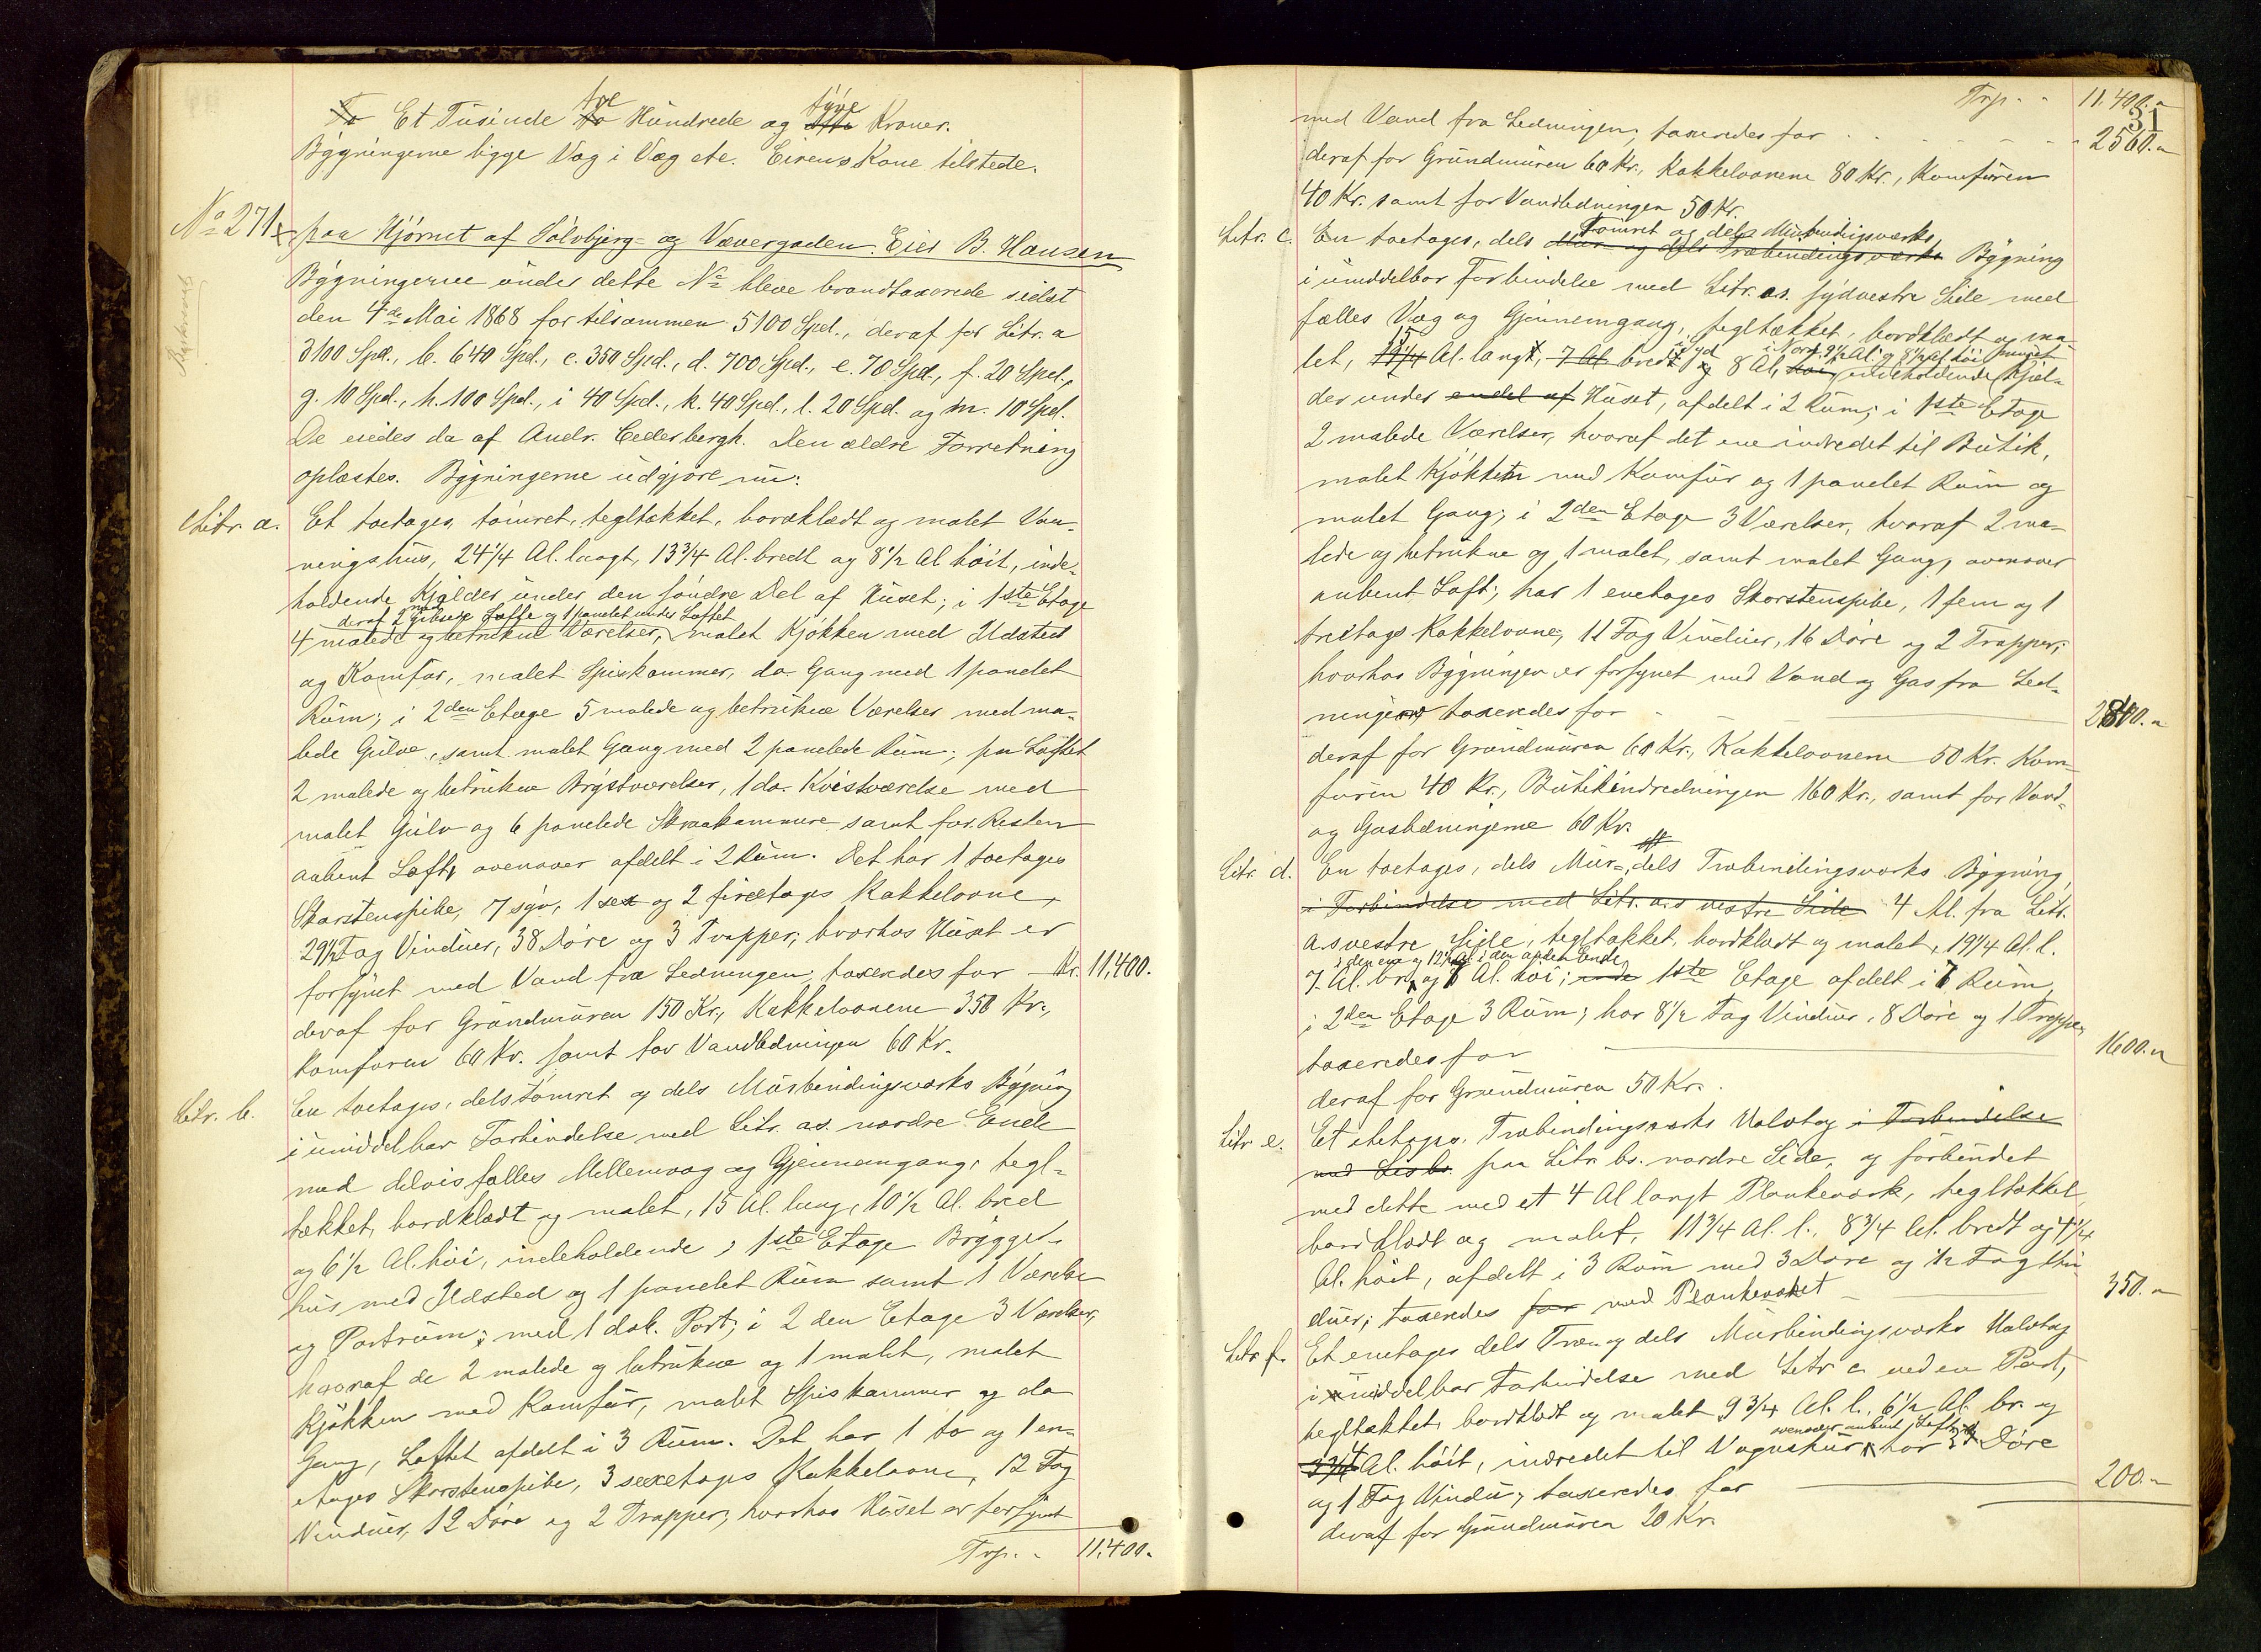 Et Tusinde toe Hundrede og tyve Kroner.
Bygningerne ligge Væg i Væg etc. Eierens Kone tilstede.
No 271. paa Hjørnet af Sølvbjerg- og Vævergaden. Eier B. Hansen
Bygningerne under dette No bleve brandtaxerede sidst
den 4de Mai 1868 for tilsammen 5100 Spd., deraf for Litr. a
3100 Spd., b. 640 Spd., c. 350 Spd., d. 700 Spd., e. 70 Spd., f. 20 Spd.,
g. 10 Spd., h. 100 Spd., i 40 Spd., k. 40 Spd., l. 20 Spd. og m. 10 Spd.
De eiedes da af Andr. Cederbergh. Den ældre Forretning
oplæstes. Bygningerne udgjøre nu:
Litr. a. Et toetages, tømret, tegltækket, bordklædt og malet Vaa-
ningshus, 24 1/4 Al. langt, 13 3/4 Al. bredt og 8 1/2 Al høit, inde-
holdende Kjælder under den søndre Del af Huset; i 1ste Etage
deraf 2 med gibsede Lofte og 1 panelet under Loftet
4 malede og betrukne Værelser, malet Kjøkken med Ildsted
og Komfur, malet Spiskammer, do. Gang med 1 panelet
Rum; i 2den Etage 5 malede og betrukne Værelser med ma-
lede Gulve, samt malet Gang med 2 panelede Rum; paa Loftet
2 malede og betrukne Brystværelser, 1 do. Kvistværelse med
malet Gulv og 6 panelede Skraakammere samt for Resten
aabent Loft, ovenover afdelt i 2 Rum. Det har 1 toetages
Skorstenspibe, 7 syv, 1 sex og 2 fireetages Kakkelovne,
29 1/2 Fag Vinduer, 38 Døre og 3 Trapper; hvorhos Huset er
forsynet med Vand fra Ledningen, taxeredes for Kr. 11,400.
deraf for Grundmuren 150 Kr., Kakkelovnene 350 Kr.,
Komfuren 60 Kr. samt for Vandledningen 60 Kr.
Litr. b. En toetages, dels tømret og dels Murbindingsværks Bygning
i umiddelbar Forbindelse med Litr. as. nordre Ende
med delvis fælles Mellemvæg og Gjennemgang, tegl-
tækket, bordklædt og malet, 15 Al. lang, 10 1/2 Al. bred
og 6 1/2 Al. høi, indeholdende i 1ste Etage Brygger-
hus med Ildsted og 1 panelet Rum samt 1 Værelse
og Portrum; med 1 dob. Port; i 2den Etage 3 Værelser,
hvoraf de 2 malede og betrukne og 1 malet, malet
Kjøkken med Komfur, malet Spiskammer og do
Gang, Loftet afdelt i 3 Rum. Det har 1 to og 1 en-
etages Skorstenspibe, 3 sexetages Kakkelovne, 12 Fag
Vinduer, 12 Døre og 2 Trapper; hvorhos Huset er forsynet
Trp. 11,400.
31
Trp. 11,400.
med Vand fra Ledningen; taxeredes for 2560.
deraf for Grundmuren 60 Kr., Kakkelovnene 80 Kr., Komfuren
40 Kr. samt for Vandledningen 50 Kr.
Tømret og dels Murbindingsværks
Litr. c. En toetages, dels Mur- og dels Træbindingsværks Bygning
i umiddelbar Forbindelse med Litr. as. sydvestre Side med
fælles Væg og Gjennemgang, tegltækket, bordklædt og ma-
15 i Syd i Nord 9 1/2 Al. og 8 1/2 Al. høi muret
let, 19 1/4 Al. langt, 7 Al. bredt og 8 Al. høi, indeholdende Kjæl-
der under endel af Huset, afdelt i 2 Rum; i 1ste Etage
2 malede Værelser, hvoraf det ene indredet til Butik,
malet Kjøkken med Komfur og 1 panelet Rum og
malet Gang; i 2den Etage 3 Værelser, hvoraf 2 ma-
lede og betrukne og 1 malet, samt malet Gang, ovenover
aabent Loft; har 1 enetages Skorstenspibe, 1 fem og 1
treetages Kakkelovne, 11 Fag Vinduer, 16 Døre og 2 Trapper;
hvorhos Bygningen er forsynet med Vand og Gas fra Led-
ningerne taxeredes for
deraf for Grundmuren 60 Kr., Kakkelovnene 50 Kr. Kom-
furen 40 Kr., Butikindredningen 160 Kr., samt for Vand-
og Gasledningerne 60 Kr.
Litr. d. En toetages, dels Mur-, dels Træbindingsværks Bygning,
i Forbindelse med Litr. a.s vestre Side 4 Al. fra Litr.
a.s vestre Side, tegltækket, bordklædt og malet, 19 1/4 Al. l.
i den ene og 12 1/2 Al. i den anden Ende
7 Al. br. og 8 Al. høi; 1ste Etage afdelt i 7 Rum,
i 2den Etage 3 Rum; har 8 1/2 Fag Vinduer, 8 Døre og 1 Trappe;
taxeredes for 1600.
deraf for Grundmuren 50 Kr.
Litr. e. Et etetages, Træbindingsværks Halvtag i Forbindelse
med Litr. b. paa Litr. bs. nordre Side, og forbundet
med dette med et 4 Al langt Plankeværk, tegltækket
bordklædt og malet, 11 3/4 Al. l., 8 3/4 Al. bredt og 4 1/4
Al. høit, afdelt i 3 Rum med 3 Døre og 1/2 Fag Vin-
duer; taxeredes for med Plankeværket 350.
Litr. f. Et enetages dels Træ- og dels Murbindingsværks Halvtag
i umiddelbar Forbindelse med Litr. e ved en Port,
tegltækket, bordklædt og malet 9 3/4 Al. l., 6 1/2 Al. br. og
ovenover aabent Loft;
3 3/4 Al. høit, indredet til Vognskur, har 3 Døre
og 1 Fag Vindu; taxeredes for 200.
deraf for Grundmuren 20 Kr.